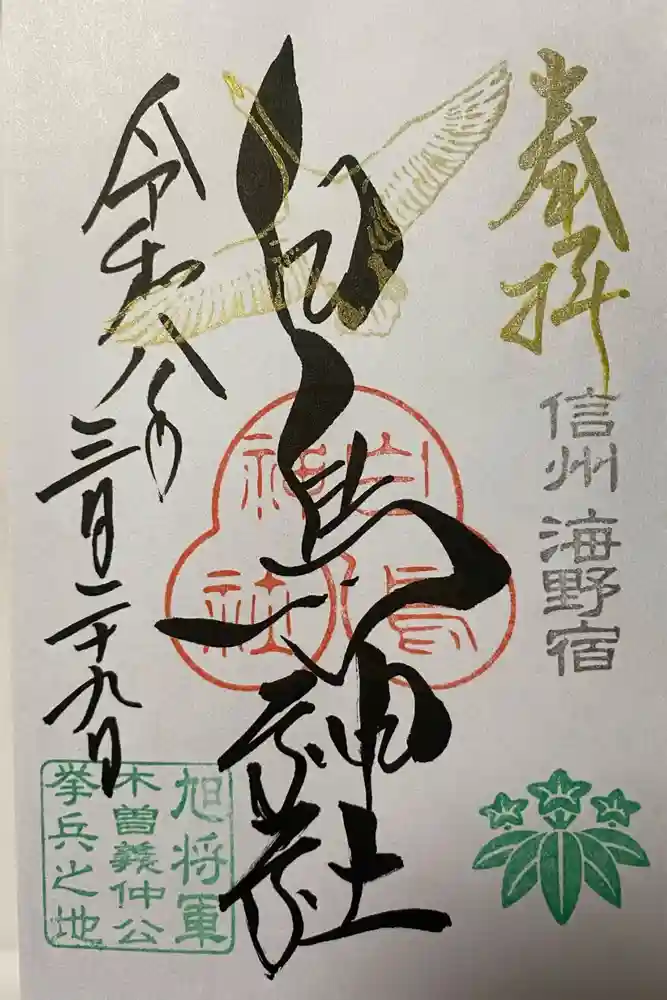 奉拝
信州 海野宿
白鳥神社
白鳥神社
令和八年
三月二十九日
旭将軍
木曽義仲公
挙兵之地